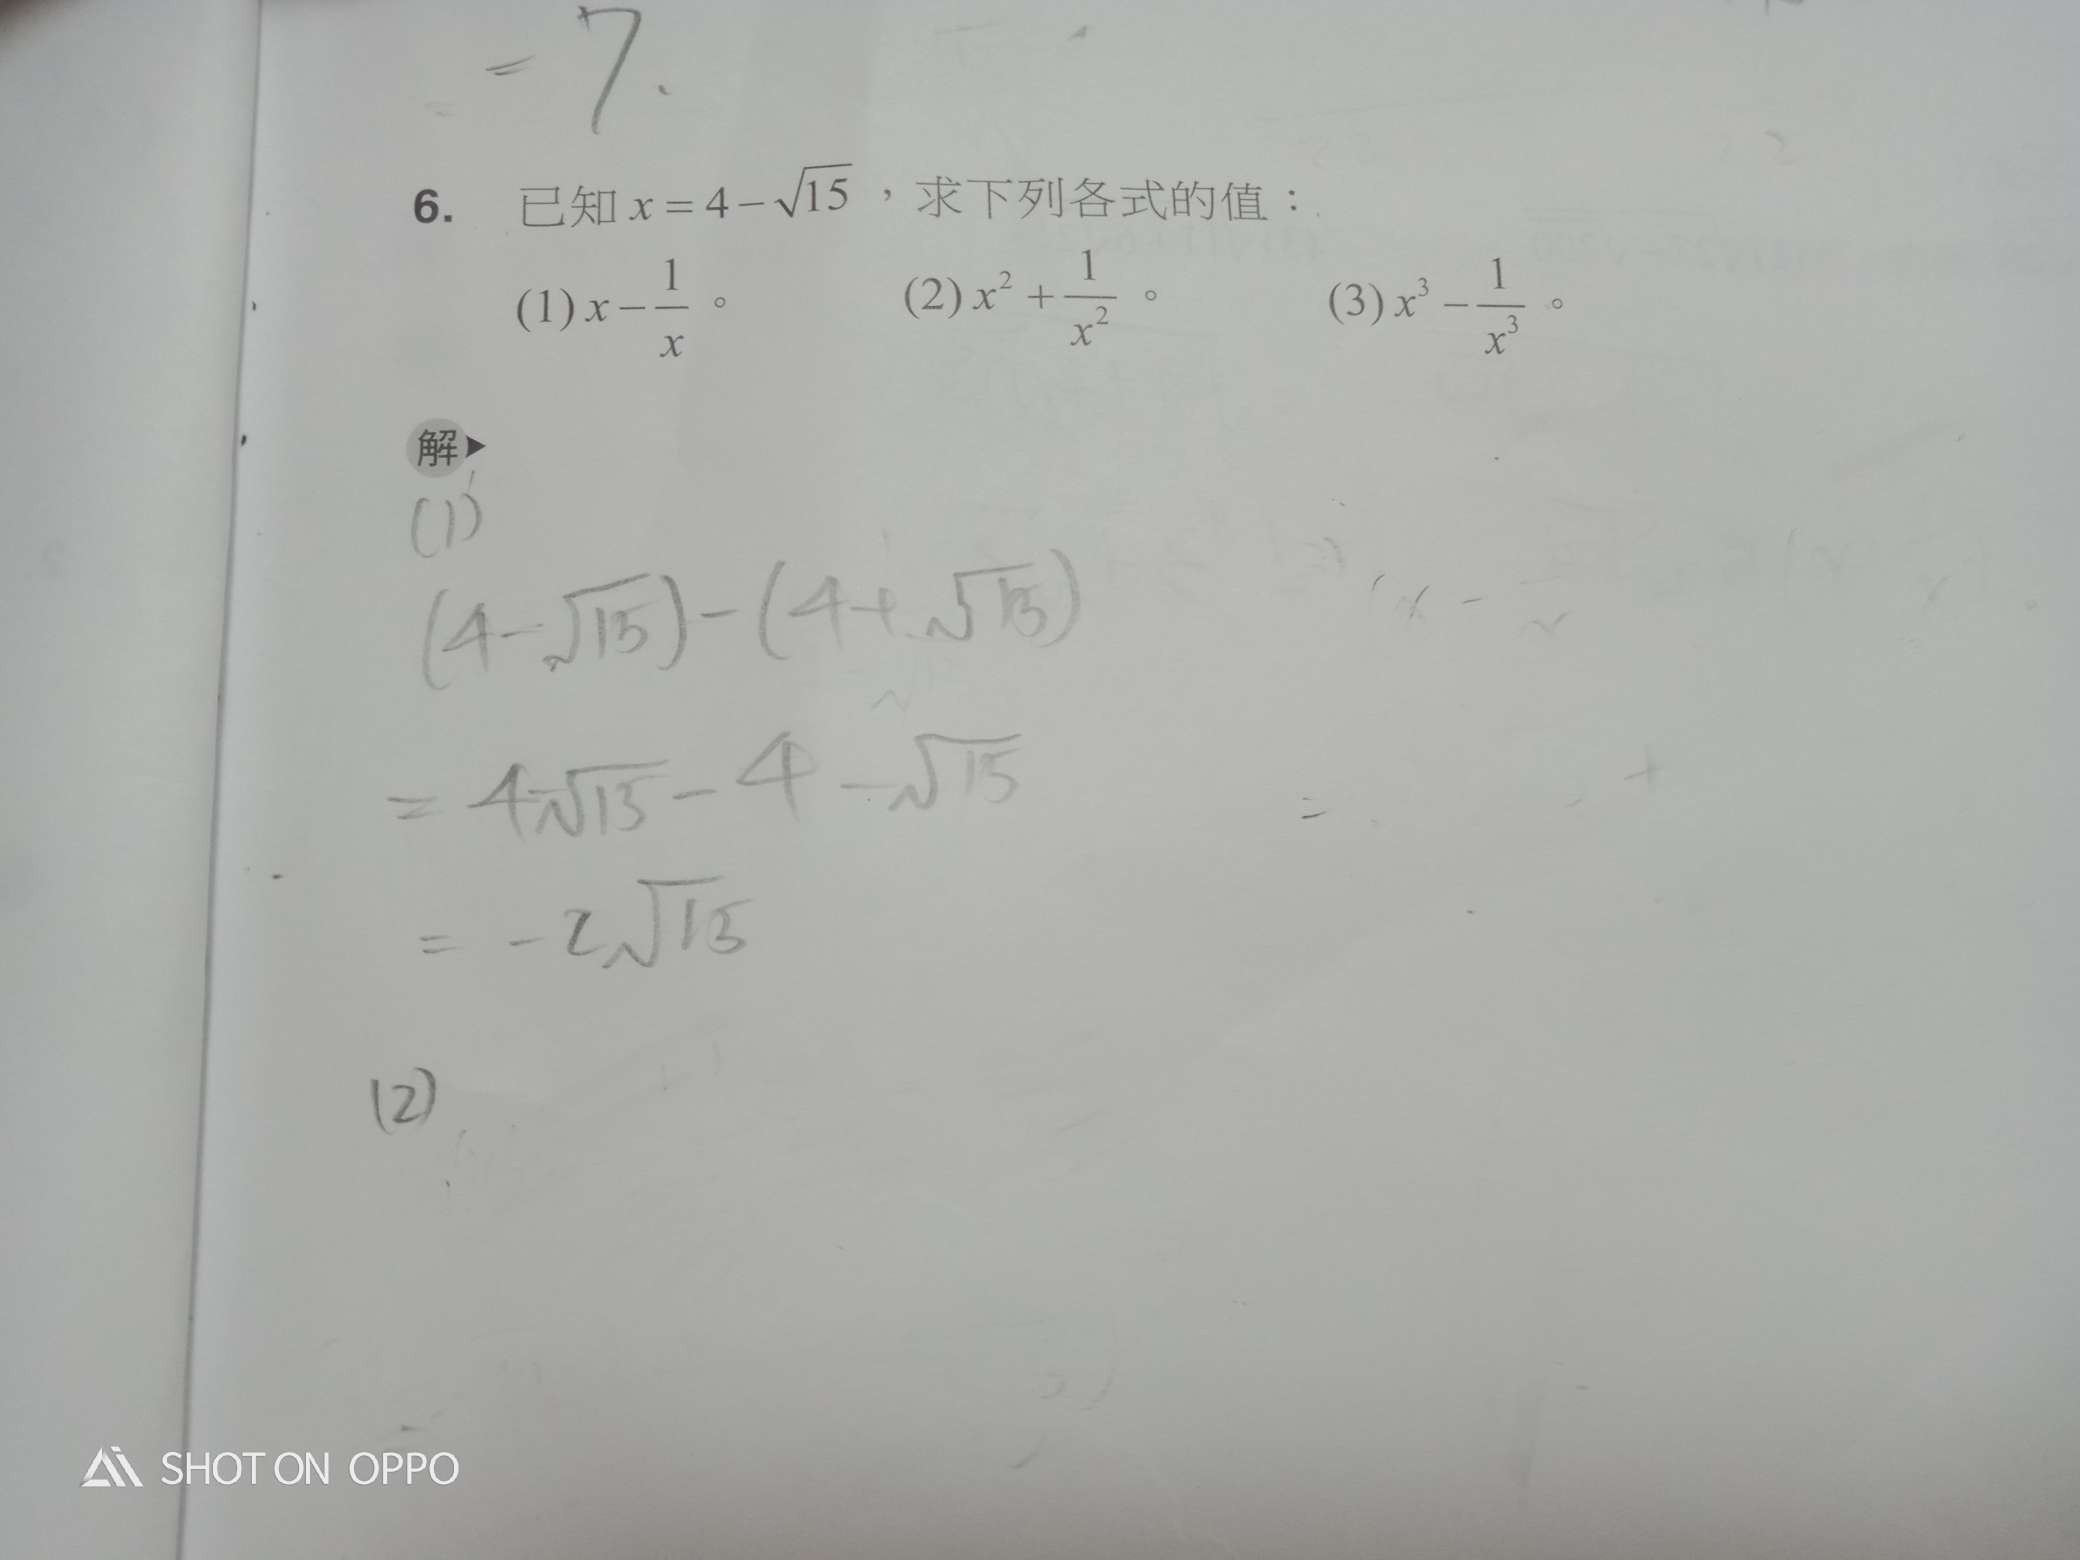 = 7.
6. 已知 x = 4 − √15 ，求下列各式的值：
(1) x − 1/x 。 (2) x² + 1/x² 。 (3) x³ − 1/x³ 。
解
(1)
(4 − √15) − (4 + √15)
= 4 − √15 − 4 − √15
= − 2√15
(2)
SHOT ON OPPO